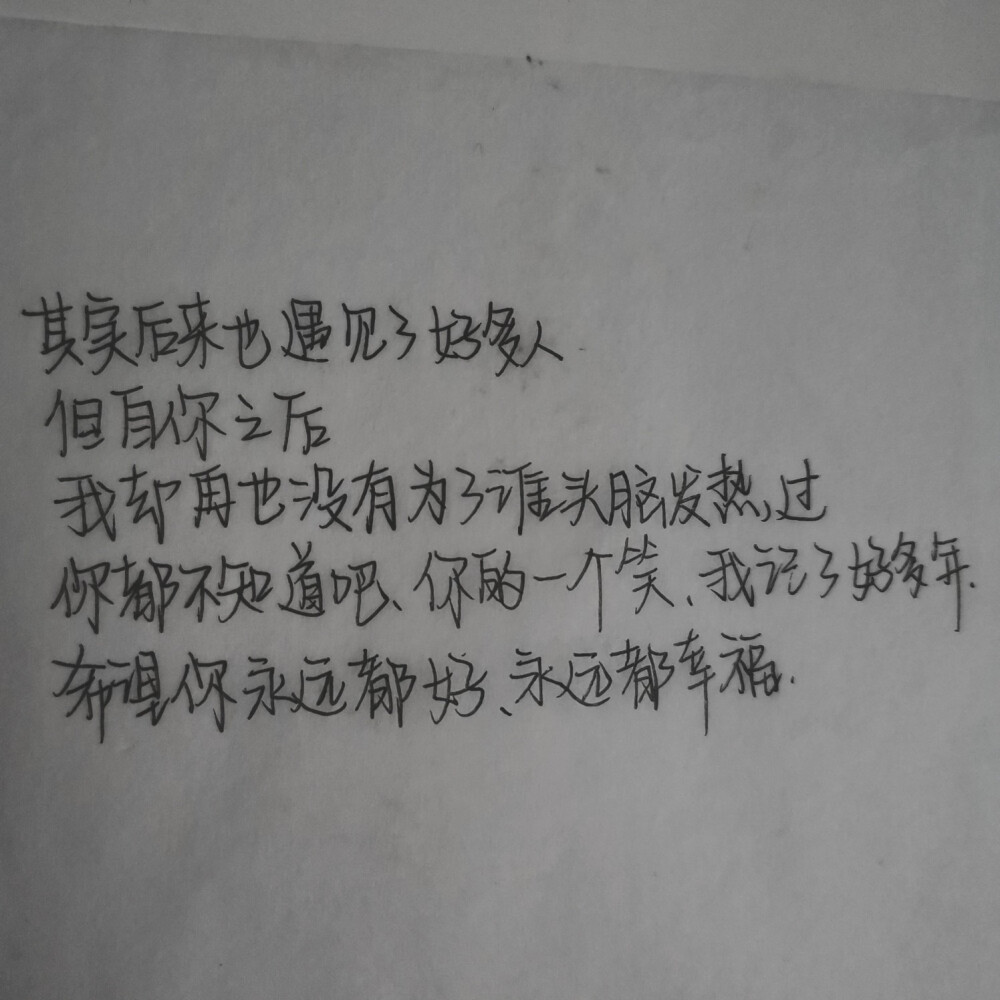 其实后来也遇见了好多人
但自你之后
我却再也没有为了谁头脑发热过
你都不知道吧、你的一个笑、我记了好多年.
希望你永远都好、永远都幸福.